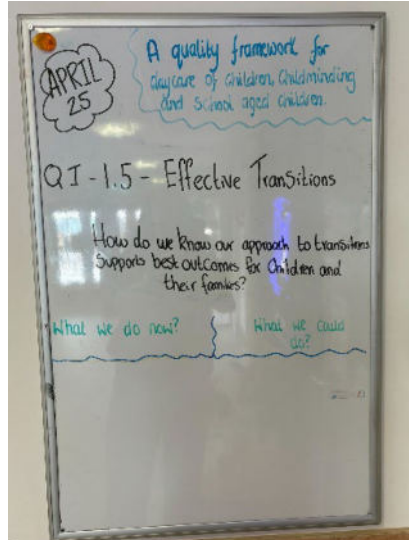 APRIL
25
A quality framework for
daycare of children, Childminding
and School aged children.
QI - 1.5 - Effective Transitions
How do we know our approach to transitions
Supports best outcomes for Children and
their families?
What we do now?
What we could
do?